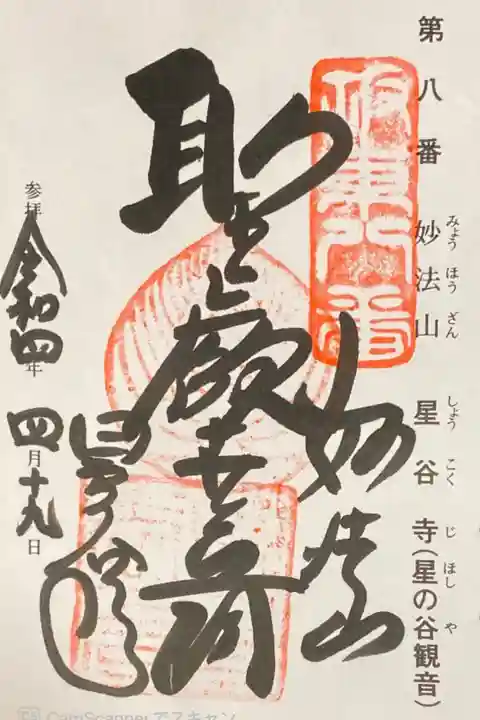 第八番 妙法山 星谷寺(星の谷観音)
みょう ほう ざん しょう こく じ ほし や
坂東八番
妙法山
聖
参拝 令和四年四月十九日
CamScannerでスキャン